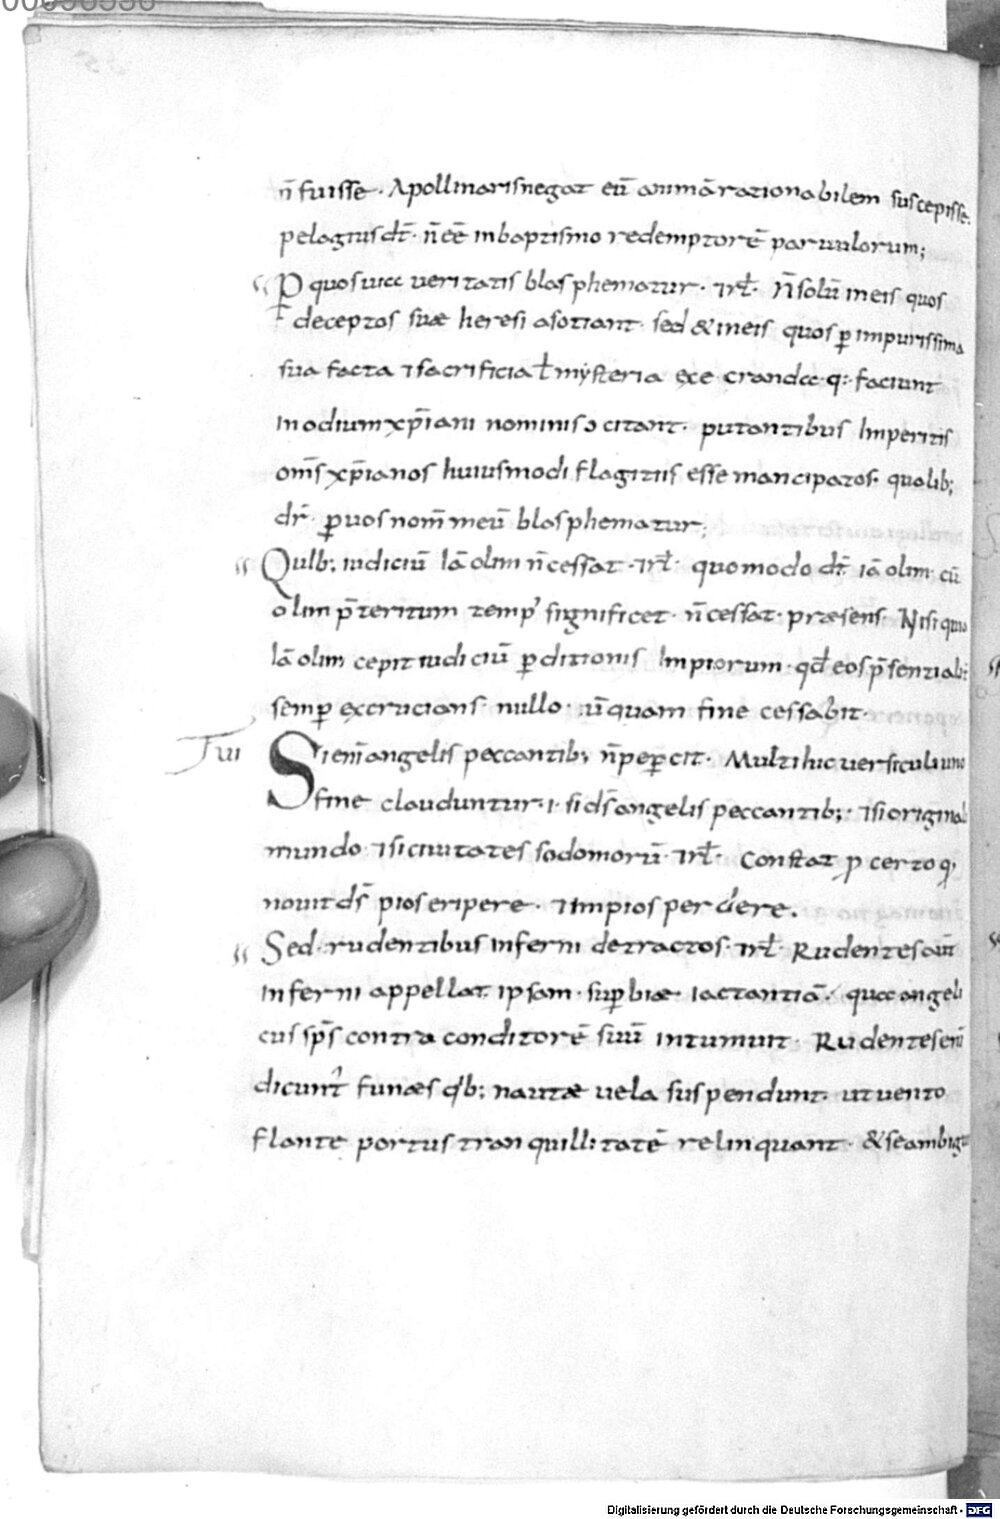 n̄ fuisse. Apollinaris negat eū animā rationabilem suscepisse.
pelagius dr̄. n̄ eē in baptismo redemptorē paruulorum;
P quos uia ueritatis blasphematur. ⁊rł. N̄ solū in eis quos
deceptos suæ heresi asotiant. sed & in eis quos ꝑ impurissima
sua facta ⁊ sacrificia ł mysteria exe crandа q: faciunt
in odium xp̄iani nominis ɔcitant. putantibus Imperitis
om̄s xp̄ianos huiusmodi flagitiis esse mancipatos. qualib;
dr̄. ꝑ uos nom̄ meū blasphematur;
Quib; iudiciū Iā olim n̄ cessat. ⁊rł. quomodo dr̄ iā olim. cū
olim p̄teritum temp' significet. n̄ cessat. præsens. Nisi quia
Iā olim cepit iudiciū ꝑditionis Impiorum. qd̄ eos p̄sentialit̄
semꝑ excrucians. nullo. ūquam fine cessabit.
Si eni angelis peccantib; n̄ peꝑcit. Multi hic uersiculi uno
fine clauduntur. i. si ds̄ angelis peccantib;. ⁊ si originali
mundo ⁊ si ciuitates sodomorū. ⁊rł. Constat p certo q,
nouit ds̄ pios eripere. ⁊ impios perdere.
Sed. rudentibus inferni detractos. ⁊rł. Rudentes aut̄
inferni appellat ipsam. suꝑbiæ. Iactantiā. qua angeli
cus sp̄s contra conditorē suū intumuit. Rudentes eni
dicunt' funæs qb; nautæ uela suspendunt. ut uento
flante portus tranquillitatē relinquant. & se ambigu
00090530
Digitalisierung gefördert durch die Deutsche Forschungsgemeinschaft - DFG